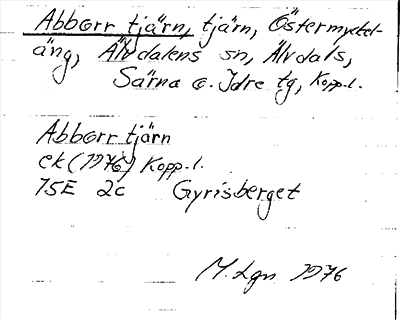 Abborrtjärn, tjärn, Östermyckel-
äng, Älvdalens sn, Älvdals,
Särna o. Idre tg, Kopp.l.
Abborrtjärn
ek (1976) Kopp.l.
15E 2c Gyrisberget
M.Lgn 1976